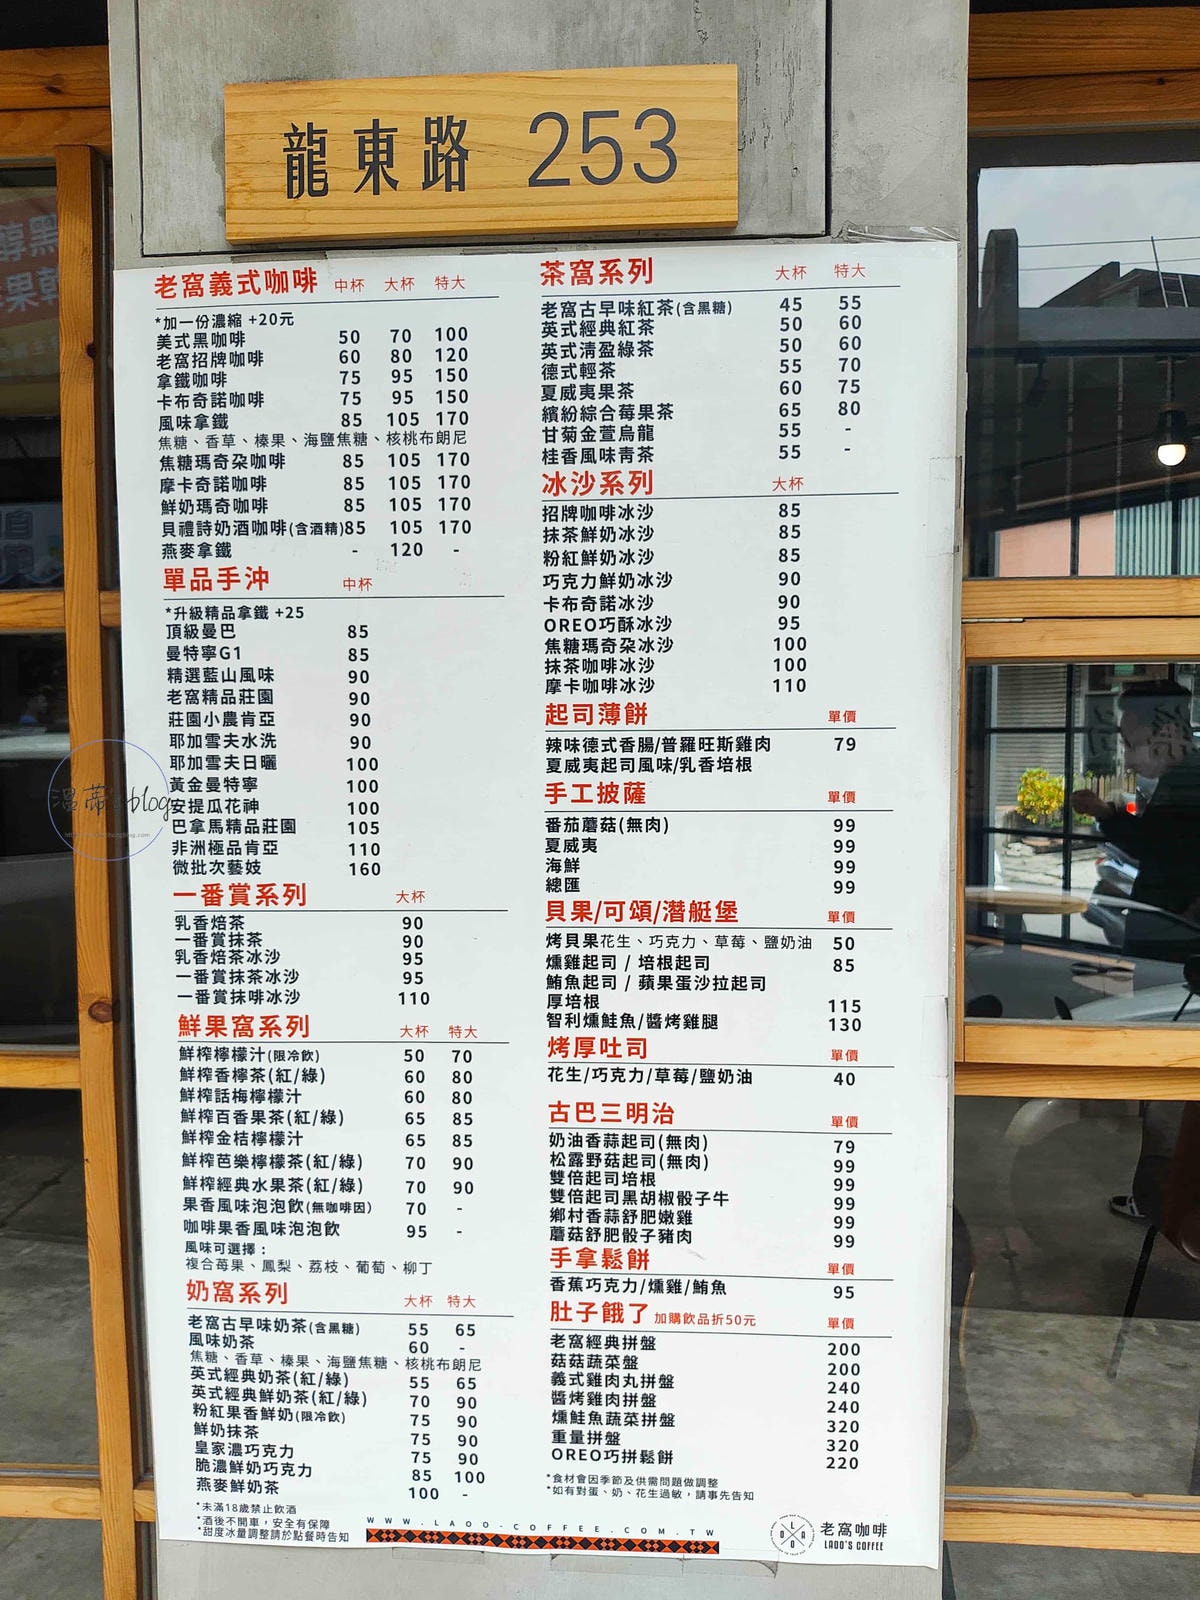 龍東路 253
老窩義式咖啡 中杯 大杯 特大
*加一份濃縮 +20元
美式黑咖啡 50 70 100
老窩招牌咖啡 60 80 120
拿鐵咖啡 75 95 150
卡布奇諾咖啡 75 95 150
風味拿鐵 85 105 170
焦糖、香草、榛果、海鹽焦糖、核桃布朗尼
焦糖瑪奇朶咖啡 85 105 170
摩卡奇諾咖啡 85 105 170
鮮奶瑪奇咖啡 85 105 170
貝禮詩奶酒咖啡(含酒精)85 105 170
燕麥拿鐵 - 120 -
單品手沖 中杯
*升級精品拿鐵 +25
頂級曼巴 85
曼特寧G1 85
精選藍山風味 90
老窩精品莊園 90
莊園小農肯亞 90
耶加雪夫水洗 90
耶加雪夫日曬 100
黃金曼特寧 100
安提瓜花神 100
巴拿馬精品莊園 105
非洲極品肯亞 110
微批次藝妓 160
一番賞系列 大杯
乳香焙茶 90
一番賞抹茶 90
乳香焙茶冰沙 95
一番賞抹茶冰沙 95
一番賞抹啡冰沙 110
鮮果窩系列 大杯 特大
鮮榨檸檬汁(限冷飲) 50 70
鮮榨香檸茶(紅/綠) 60 80
鮮榨話梅檸檬汁 60 80
鮮榨百香果茶(紅/綠) 65 85
鮮榨金桔檸檬汁 65 85
鮮榨芭樂檸檬茶(紅/綠) 70 90
鮮榨經典水果茶(紅/綠) 70 90
果香風味泡泡飲(無咖啡因) 70 -
咖啡果香風味泡泡飲 95 -
風味可選擇：
複合苺果、鳳梨、荔枝、葡萄、柳丁
奶窩系列 大杯 特大
老窩古早味奶茶(含黑糖) 55 65
風味奶茶 60 -
焦糖、香草、榛果、海鹽焦糖、核桃布朗尼
英式經典奶茶(紅/綠) 55 65
英式經典鮮奶茶(紅/綠) 70 90
粉紅果香鮮奶(限冷飲) 75 90
鮮奶抹茶 75 90
皇家濃巧克力 75 90
脆濃鮮奶巧克力 85 100
燕麥鮮奶茶 100 -
*未滿18歲禁止飲酒
*酒後不開車，安全有保障
*甜度冰量調整請於點餐時告知
茶窩系列 大杯 特大
老窩古早味紅茶(含黑糖) 45 55
英式經典紅茶 50 60
英式清盈綠茶 50 60
德式輕茶 55 70
夏威夷果茶 60 75
繽紛綜合莓果茶 65 80
甘菊金萱烏龍 55 -
桂香風味青茶 55 -
冰沙系列 大杯
招牌咖啡冰沙 85
抹茶鮮奶冰沙 85
粉紅鮮奶冰沙 85
巧克力鮮奶冰沙 90
卡布奇諾冰沙 90
OREO巧酥冰沙 95
焦糖瑪奇朶冰沙 100
抹茶咖啡冰沙 100
摩卡咖啡冰沙 110
起司薄餅 單價
辣味德式香腸/普羅旺斯雞肉 79
夏威夷起司風味/乳香培根
手工披薩 單價
番茄蘑菇(無肉) 99
夏威夷 99
海鮮 99
總匯 99
貝果/可頌/潛艇堡 單價
烤貝果花生、巧克力、草莓、鹽奶油 50
燻雞起司 / 培根起司 85
鮪魚起司 / 蘋果蛋沙拉起司
厚培根 115
智利燻鮭魚/醬烤雞腿 130
烤厚吐司 單價
花生/巧克力/草莓/鹽奶油 40
古巴三明治 單價
奶油香蒜起司(無肉) 79
松露野菇起司(無肉) 99
雙倍起司培根 99
雙倍起司黑胡椒骰子牛 99
鄉村香蒜舒肥嫩雞 99
蘑菇舒肥骰子豬肉 99
手拿鬆餅 單價
香蕉巧克力/燻雞/鮪魚 95
肚子餓了 加購飲品折50元 單價
老窩經典拼盤 200
菇菇蔬菜盤 200
義式雞肉丸拼盤 240
醬烤雞肉拼盤 240
燻鮭魚蔬菜拼盤 320
重量拼盤 320
OREO巧拼鬆餅 220
*食材會因季節及供需問題做調整
*如有對蛋、奶、花生過敏，請事先告知
WWW.LAOO-COFFEE.COM.TW
老窩咖啡
LAOO'S COFFEE
溫蒂's blog